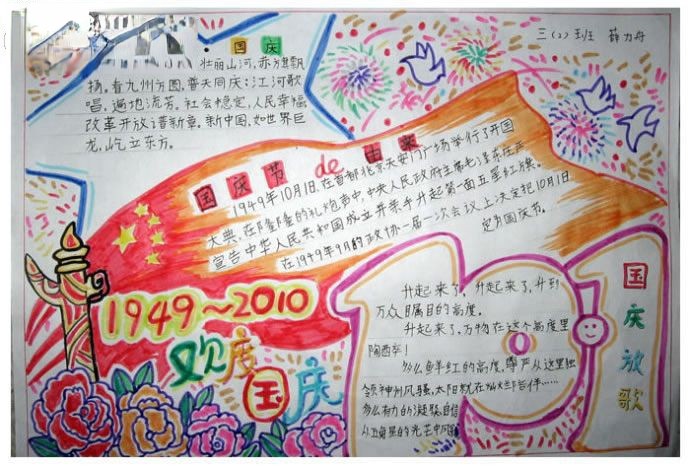 国庆
三(2)班 薛力舟
壮丽山河,赤旗飘
扬。看九州方圆,普天同庆;江河歌
唱,遍地流芳。社会稳定,人民幸福
改革开放谱新章。新中国,如世界巨
龙,屹立东方。
国庆节de由来
1949年10月1日,在首都北京天安门广场举行了开国
大典,在隆隆的礼炮声中,中央人民政府主席毛泽东庄严
宣告中华人民共和国成立并亲手升起第一面五星红旗。
在1949年9月的政协一届一次会议上决定把10月1日
定为国庆节。
1949~2010
欢度
国庆
10·1
国庆放歌
升起来了,升起来了,升到
万众瞩目的高度。
升起来了,万物在这个高度里
陶醉!
多么鲜红的高度,尊严从这里独
领神州风骚,太阳就在灿烂
多么有力的凝聚,自信
从五角星的光芒中